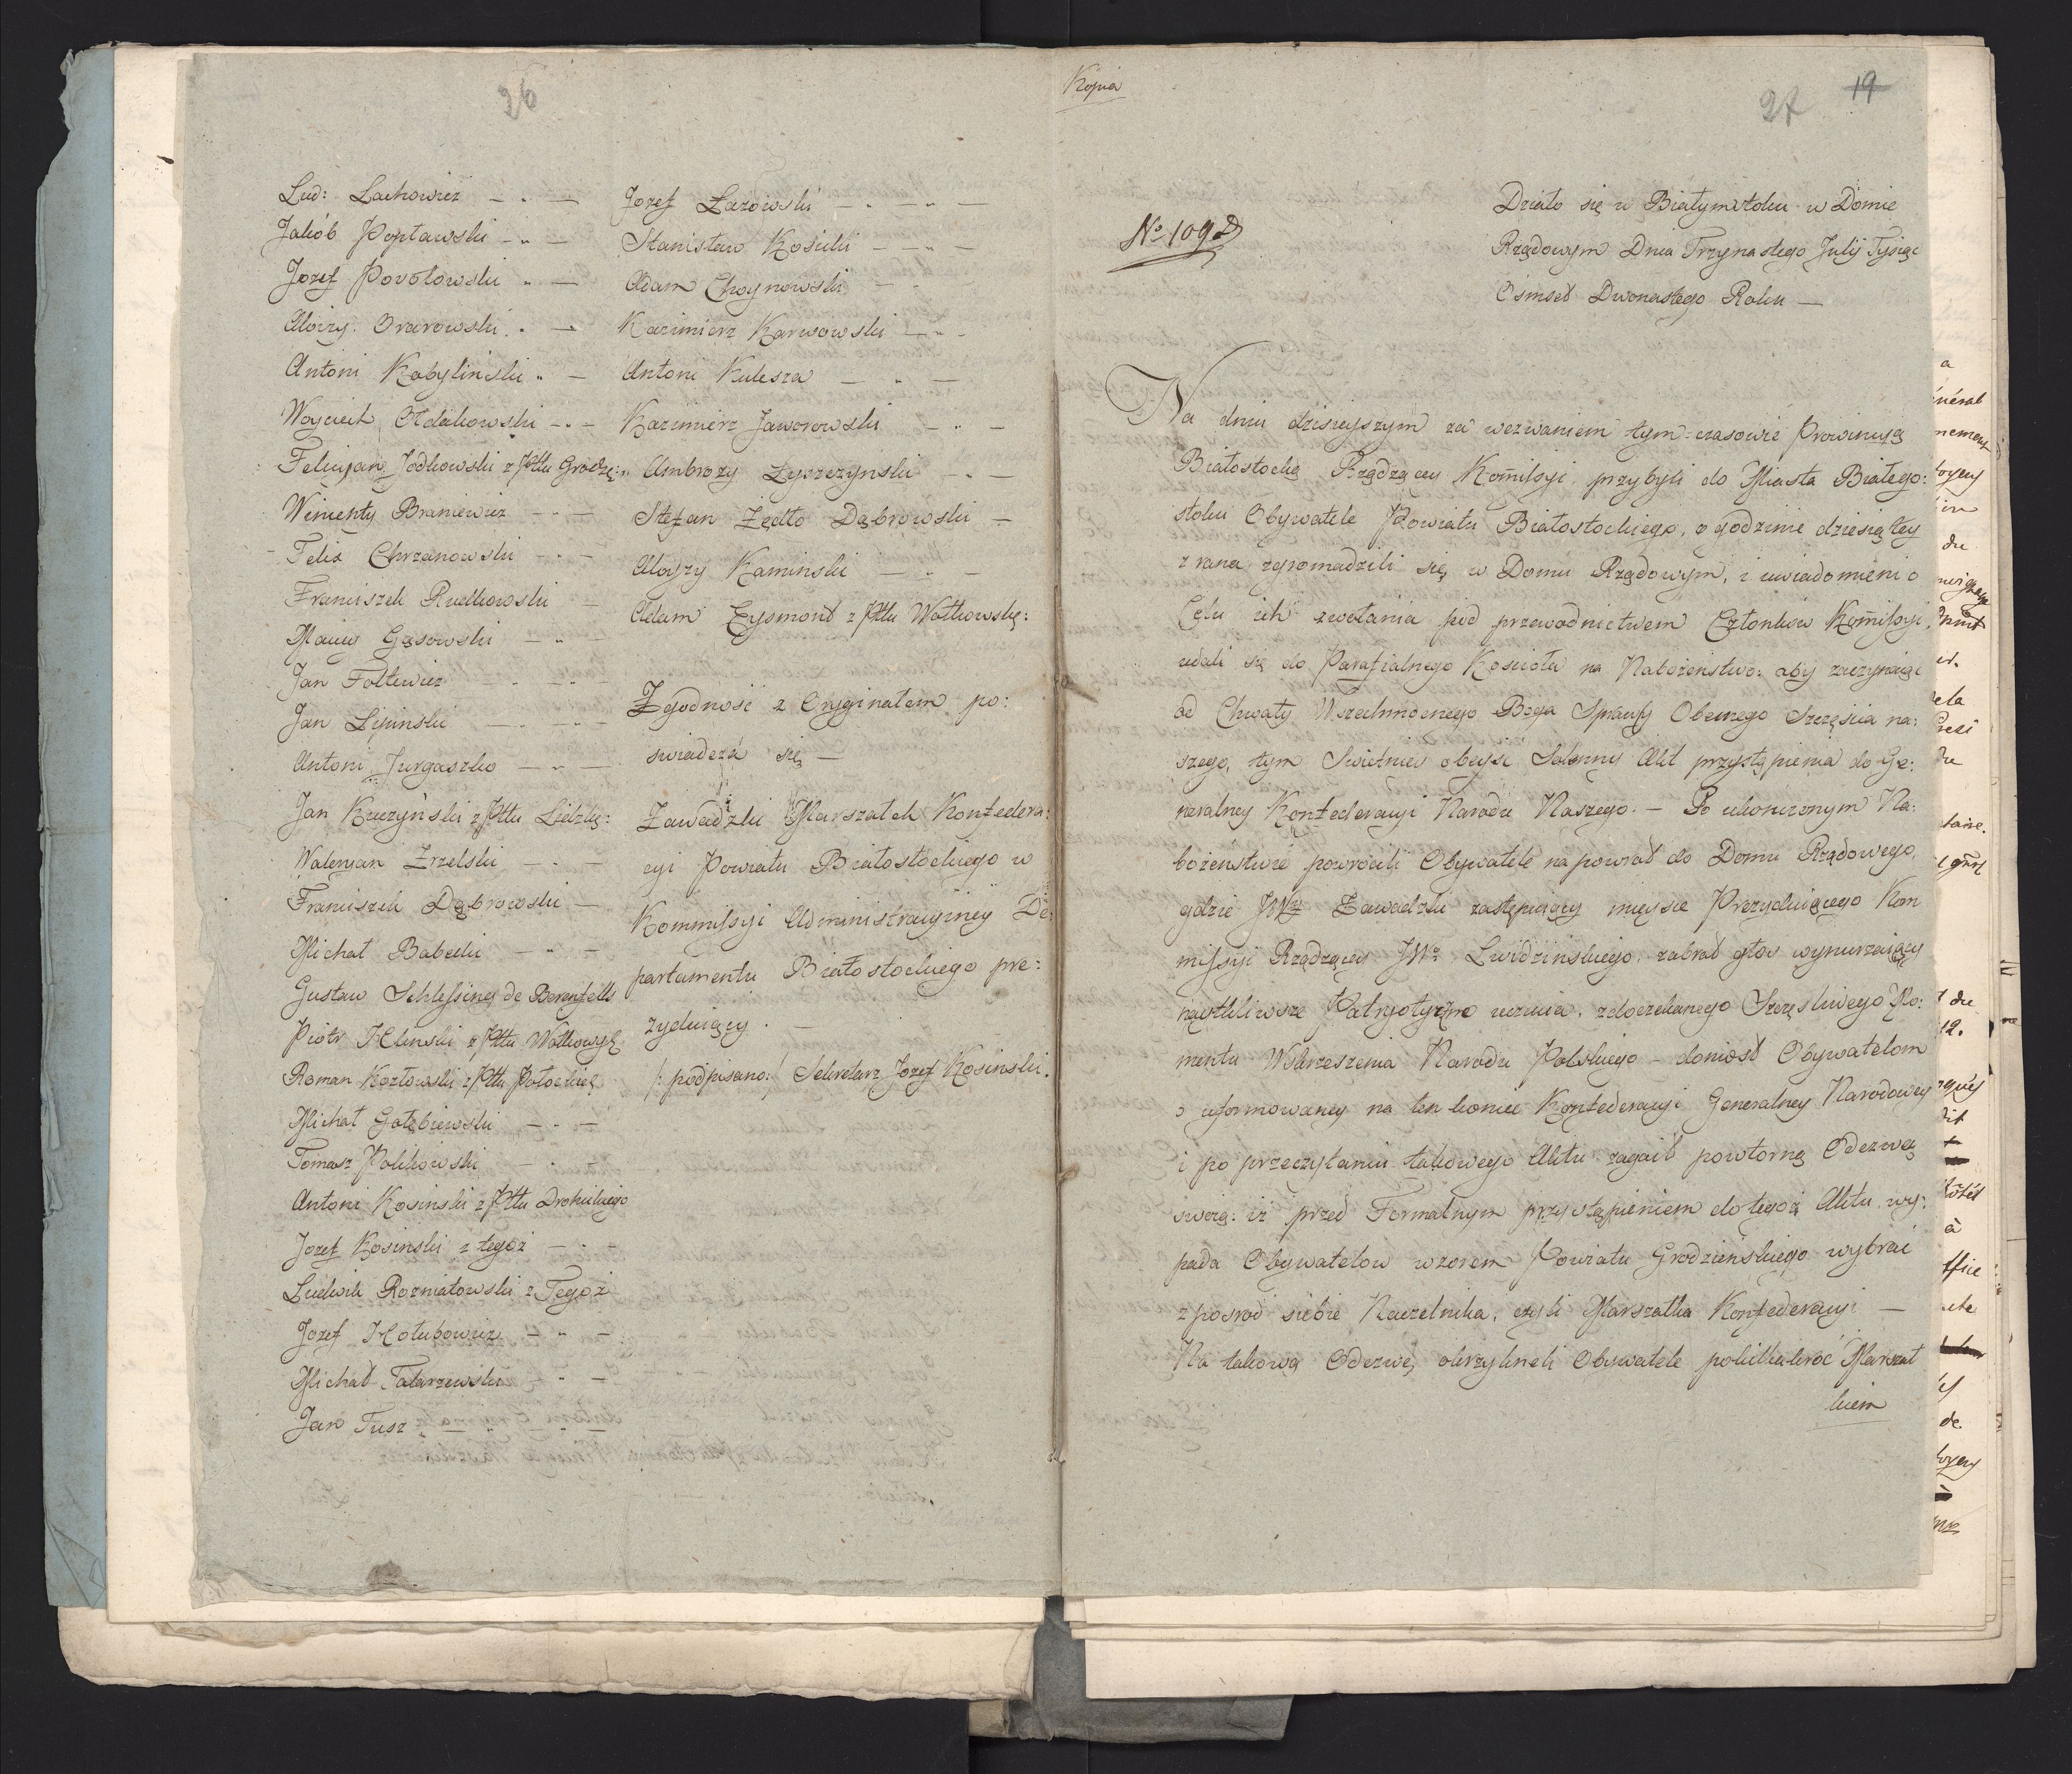 26
Lud: Lachowicz — „ —
Jakób Popławski — „ —
Jozef Powołowski „ —
Aloizy Orarowski „ —
Antoni Kobyliński „ —
Woyciech Adakowski — „ —
Felicyan Jodkowski z Pttu Grodzę: „
Wincenty Braniewicz — „ —
Felix Chrzanowski — „ —
Franciszek Rutkowski —
Maciey Gąsowski — „ —
Jan Foltewicz — „ —
Jan Lipinski — „ —
Antoni Jurgaszko — „ —
Jan Kuczyński z Pttu Lidzkę:
Waleryan Zrzelski — „ —
Franciszek Dąbrowski —
Michał Babecki — „ —
Gustaw Schlessing de Berenfells
Piotr Hlinski z Pttu Wołkowyś
Roman Kozłowski z Pttu Połockieg
Michał Gołębiewski — „ —
Tomasz Polikowski — „
Antoni Kosinski z Pttu Drohickiego
Jozef Kosinski z tegoż — „ —
Ludwik Rozniatowski z Tegoż
Jozef Hołubowicz — „ —
Michał Tatarzewski — „ —
Jan Tusz „ — „ — „ —
Jozef Łazowski — „ — „ —
Stanisław Kosicki — — „ —
Adam Choynowski — „
Kazimierz Karwowski — „ —
Antoni Kulesza — „ —
Kazimierz Jaworowski — „ —
Ambrozy Łyszczynski — „ —
Stefan Zędto Dąbrowski —
Aloyzy Kaminski — „ —
Adam Eysmont z Pttu Wołkowskę:
Zgodność z Oryginałem po:
świadcza się —
Zawadzki Marszałek Konfedera:
cyi Powiatu Białostockiego w
Kommissyi Administracyiney De:
partamentu Białostockiego pre:
zyduiący. —
/: podpisano:/ Sekretarz Jozef Kosinski.
Kopia
27 19
No 1092
Działo się w Białymstoku w Domie
Rządowym Dnia Trzynastego Julij Tysiąc
Ośmset Dwonastego Roku —
Na dniu dzisieyszym za wezwaniem tym-czasowie Prowincyą
Białostocką Rządzącey Kom̃issyi, przybyli do Miasta Białego:
stoku Obywatele Powiatu Białostockiego, o godzinie dziesiątey
z rana zgromadzili się w Domu Rządowym, i uwiadomieni o
Celu ich zwołania pod przewodnictwem Członków Kom̃issyi
udali się do Parafialnego Kościoła na Nabożeństwo: aby zaczynaiąc
od Chwały Wszechmocnego Boga Sprawcy Obecnego Szczęścia na:
szego, tym Swietniey obeyść Solenny Akt przystąpienia do Ge:
neralney Konfederacyi Narodu Naszego. — Po ukończonym Na:
bożeństwie powrócili Obywatele na powrót do Domu Rządowego,
gdzie JWny Zawadzki zastępuiący mieysce Prezyduiącego Kom
missyi Rządzącey JWo Lwidzinskiego, zabrał głos wynurzaiący
naytkliwsze Patryotyzmu uczucia, z doczekanego Szczęsliwego Mo:
mentu Wskrzeszenia Narodu Polskiego — doniosł Obywatelom
o uformowaney na ten koniec Konfederacyi Generalney Narodowey
i po przeczytaniu takowego Aktu zagaił powtorną Odezwę
swoię: iż przed Formalnym przystąpieniem do tegoż Aktu, wy:
pada Obywatelow wzorem Powiatu Grodzieńskiego wybrać
z posrod siebie Naczelnika, czyli Marszałka Konfederacyi —
Na takową Odezwę, okrzykneli Obywatele pokilkakroć Marszał
kiem